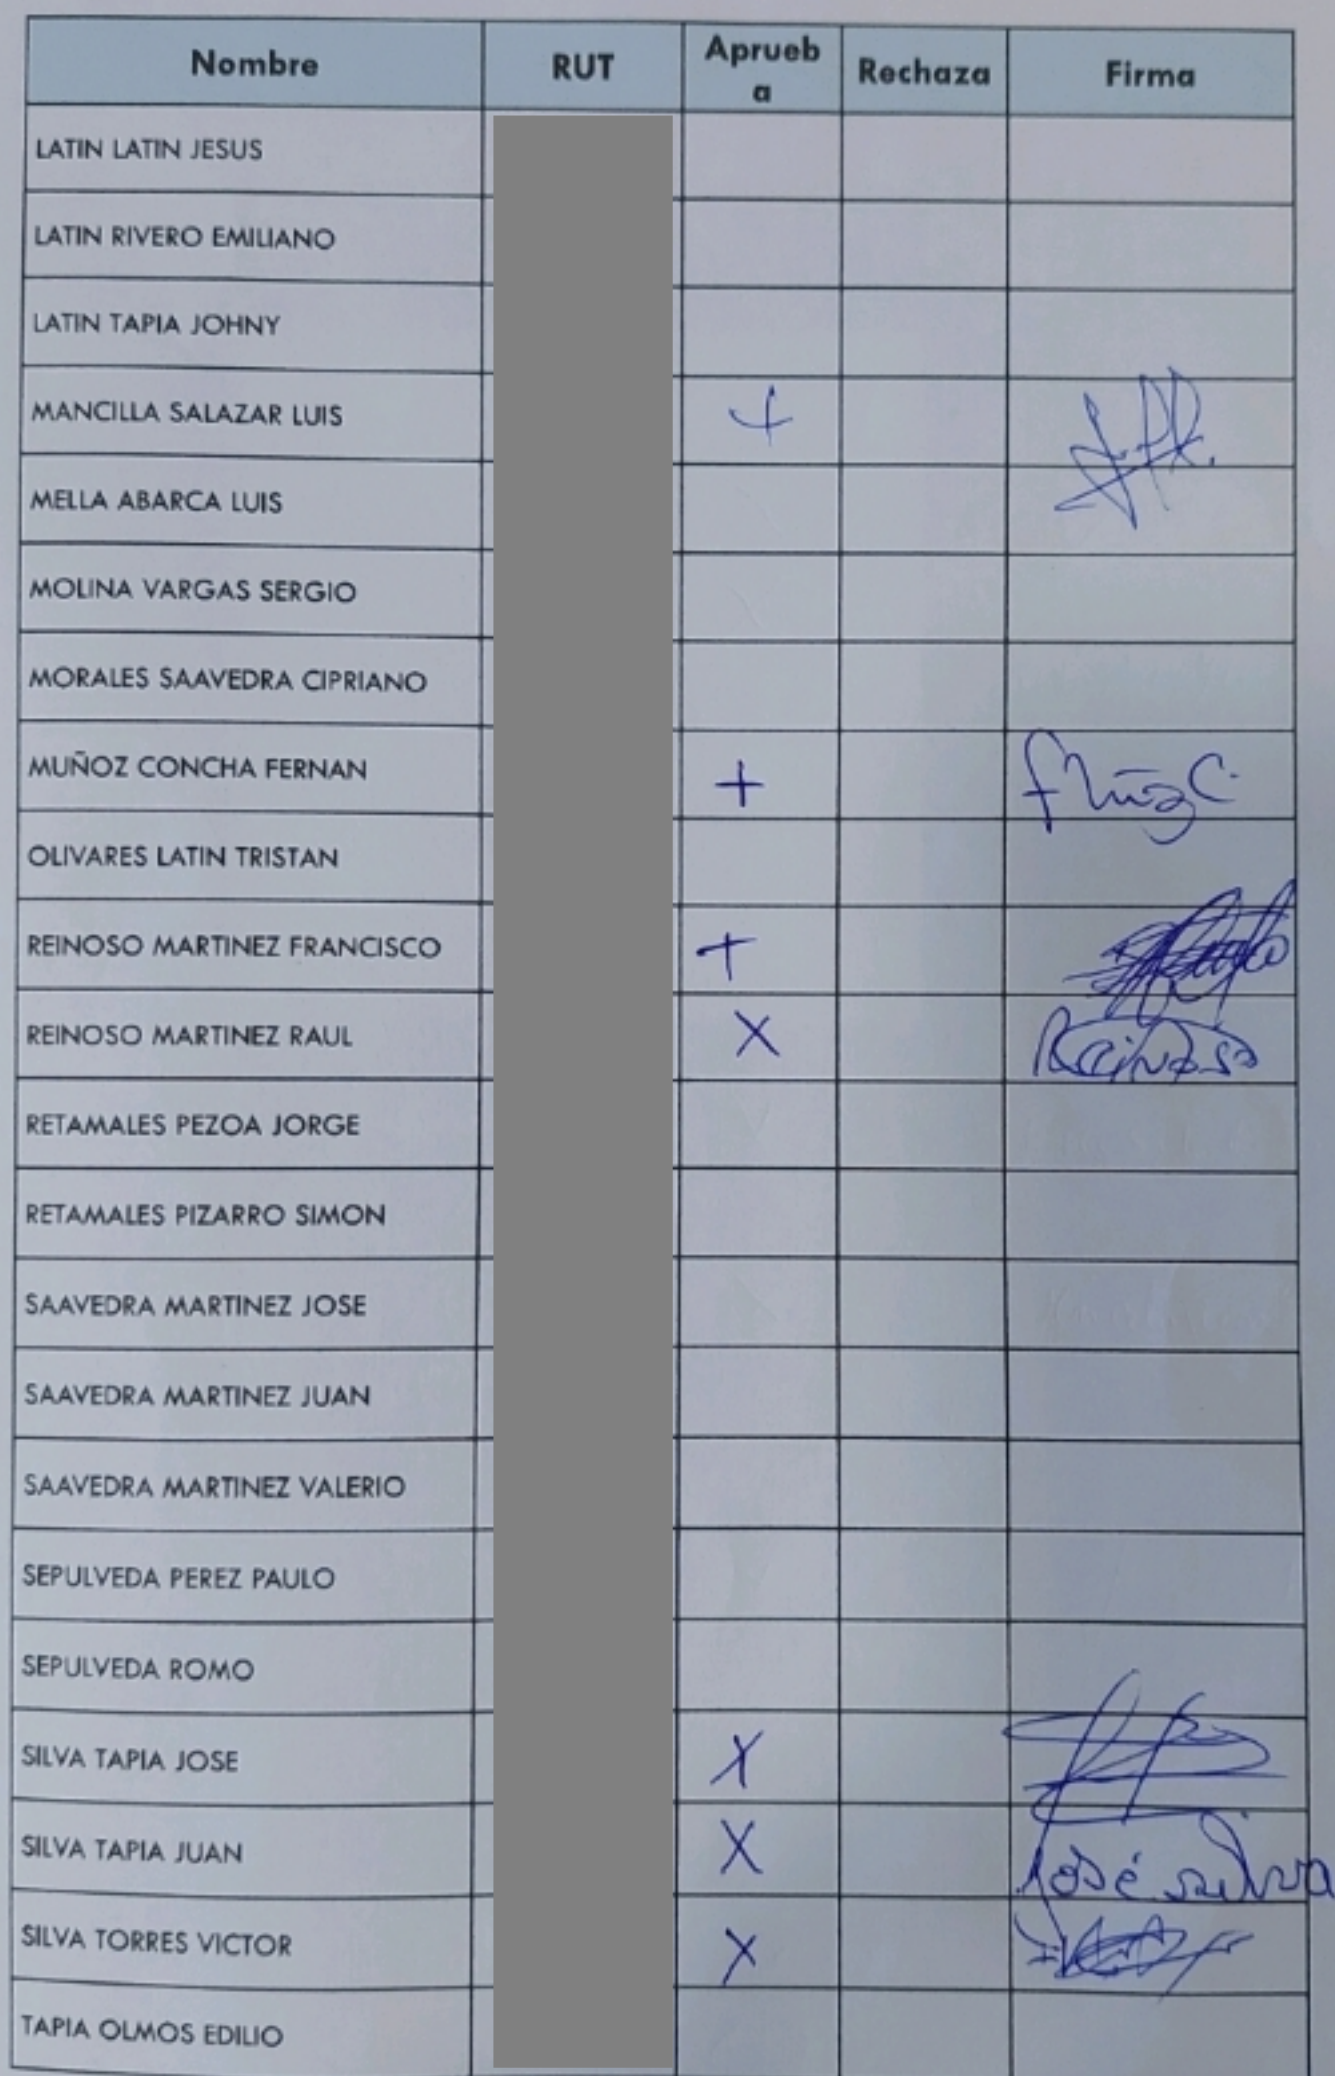 Nombre RUT Aprueb Rechaza Firma
a
LATIN LATIN JESUS
LATIN RIVERO EMILIANO
LATIN TAPIA JOHNY
MANCILLA SALAZAR LUIS +
MELLA ABARCA LUIS
MOLINA VARGAS SERGIO
MORALES SAAVEDRA CIPRIANO
MUÑOZ CONCHA FERNAN +
OLIVARES LATIN TRISTAN
REINOSO MARTINEZ FRANCISCO +
REINOSO MARTINEZ RAUL X Reinoso
RETAMALES PEZOA JORGE
RETAMALES PIZARRO SIMON
SAAVEDRA MARTINEZ JOSE
SAAVEDRA MARTINEZ JUAN
SAAVEDRA MARTINEZ VALERIO
SEPULVEDA PEREZ PAULO
SEPULVEDA ROMO
SILVA TAPIA JOSE X
SILVA TAPIA JUAN X José Silva
SILVA TORRES VICTOR X
TAPIA OLMOS EDILIO